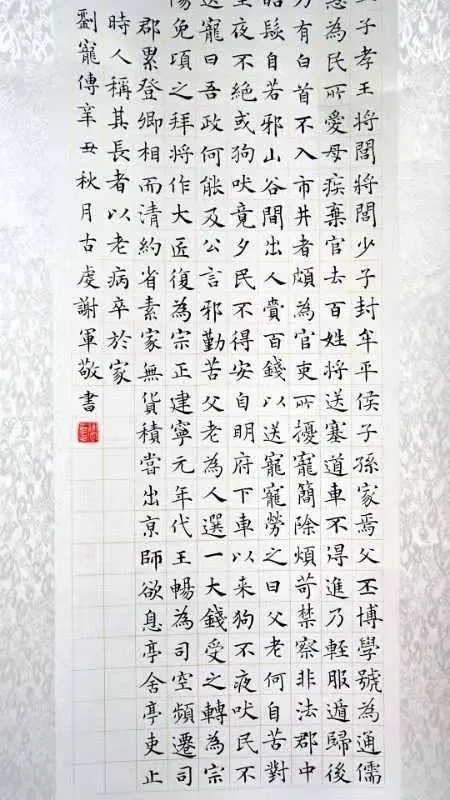 子孝王將閭將閭少子封牟平侯子孫家焉父丕博學號為通儒
為民所愛母疾棄官去百姓將送塞道車不得進乃輕服遁歸後
有白首不入市井者頗為官吏所擾寵簡除煩苛禁察非法郡中
皓髮自若邪山谷間出人賫百錢以送寵寵勞之曰父老何自苦對
至夜不絕或狗吠竟夕民不得安自明府下車以来狗不夜吠民不
送寵曰吾政何能及公言邪勤苦父老為人選一大錢受之轉為宗
陽免頃之拜將作大匠復為宗正建寧元年代王暢為司空頻遷司
郡累登卿相而清約省素家無貨積嘗出京師欲息亭舍亭吏止
時人稱其長者以老病卒於家
劉寵傳辛丑秋月古虔謝軍敬書